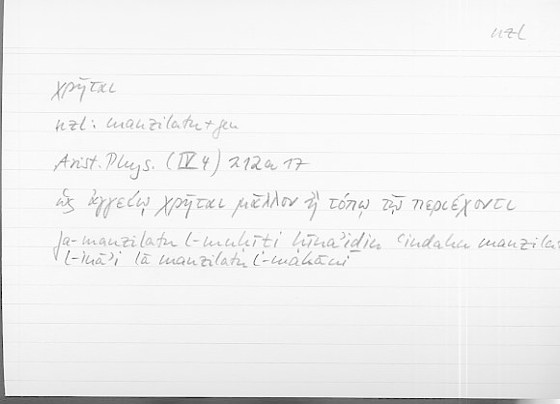 nzl
χρῆται
nzl: manzilatu + gen
Arist. Phys. (IV 4) 212a 17
ὡς ἀγγείῳ χρῆται μᾶλλον ἢ τόπῳ τῷ περιέχοντι
fa-manzilatu l-muḥīṭi ḥīnaʾiḏin ʿindahu manzilatu
l-ināʾi lā manzilatu l-makāni